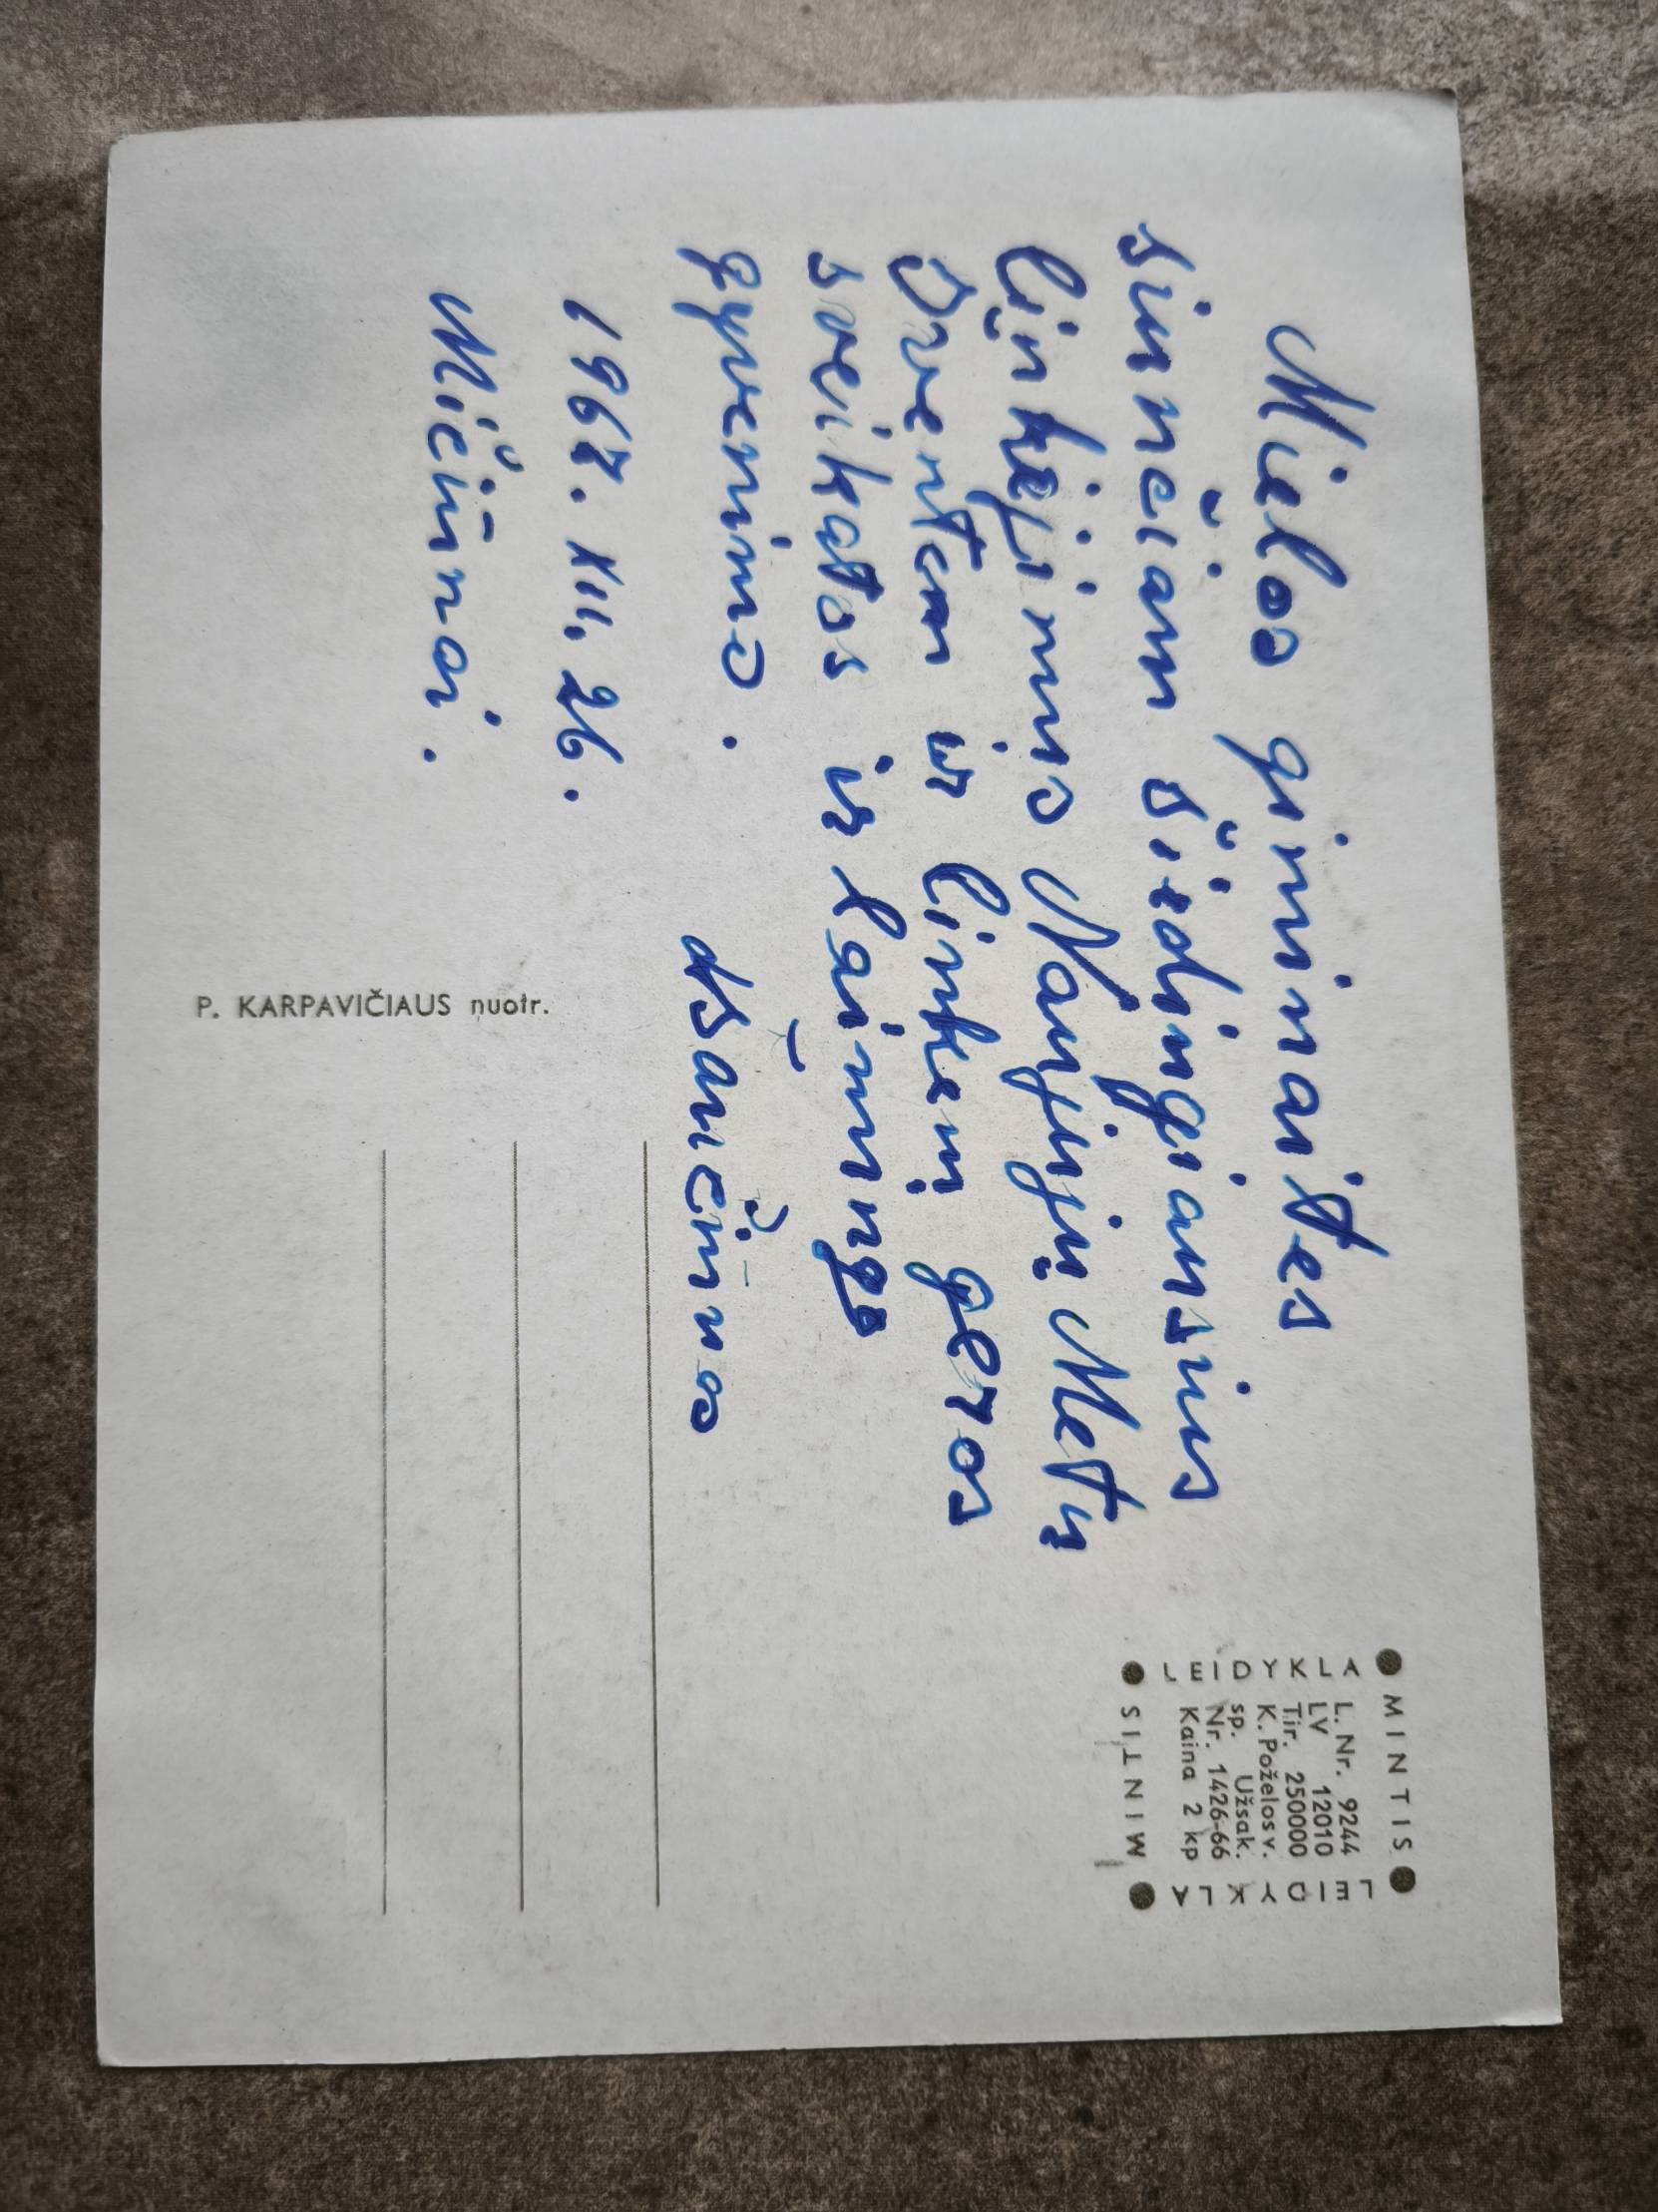 Mielos giminaites
sunčiam širdingiausius
linkėjimus Naujųjų Metų
Švenčiam ir linkem geros
sveikatos ir laimingo
gyvenimo.
1967. XII. 26.
Mičiūnai.
P. KARPAVIČIAUS nuotr.
MINTIS
LEIDYKLA
MINTIS
LEIDYKLA
L. Nr. 9244
LV 12010
Tir. 250000
K. Požėlos v.
sp. Užsak.
Nr. 1426-66
Kaina 2 kp